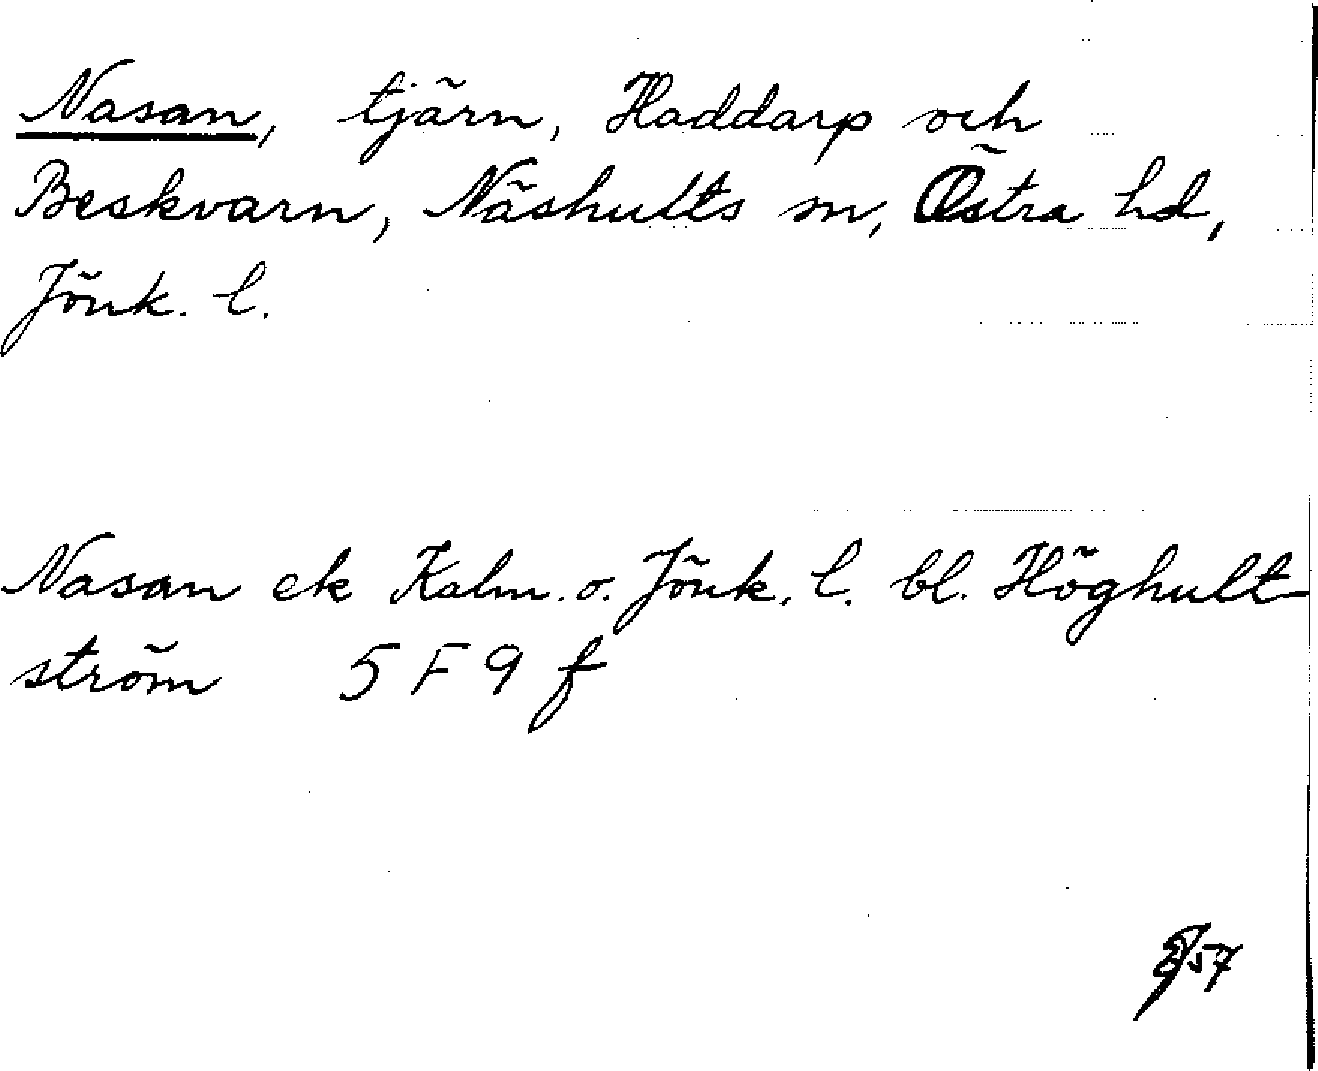 Nasan, tjärn, Haddarp och
Beskvarn, Näshults sn, Östra hd,
Jönk. l.
Nasan ek Kalm. o. Jönk. l. bl. Höghult-
ström 5 F 9 f
57